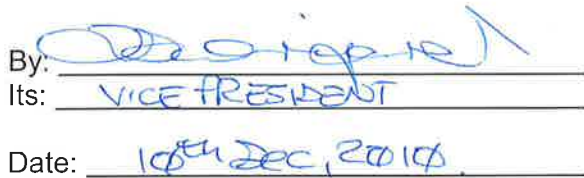 By:
Its: VICE PRESIDENT
Date: 10th Dec, 2010